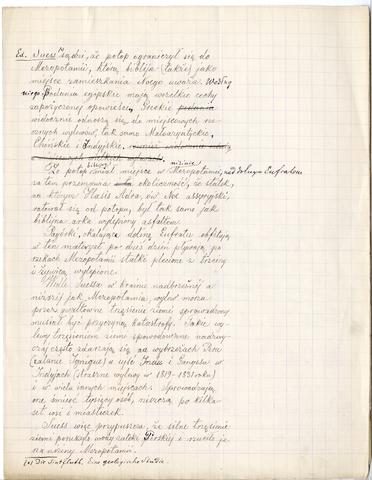 Ed. Suess (*) sądzi, że potop ograniczył się do
Mezopotamii, którą biblija także jako
miejsce zamieszkania Noego uważa. Według
niego Podania egipskie mają wszelkie cechy
zapożyczonej opowieści, Greckie podania
widocznie odnoszą się do miejscowych
wylewów, tak samo Malearyatyckie,
Chińskie i Indyjskie,
Że potop biblijny miał miejsce w nizinie Mezopotamii, nad dolnym Eufratem
za tem przemawia okoliczność, że statek,
na którym Hasis Adra, ów Noe assyryjski,
ratował się od potopu, był tak samo jak
biblijna arka wylepiony asfaltem
okalające dolinę Eufratu obfitują
w ten materyał i po dziś dzień pływają po
rzekach Mezopotamii statki plecione z trzciny
i żywicą wylepione.
Suessa w krainie nadbrzeżnej a
nizkiej jak Mezopotamia, wylew morza
przez gwałtowne trzęsienie ziemi sprowadzony
musiał być przyczyną katastrofy. Takie wy-
lewy trzęsieniem ziemi spowodowane nadzwy-
czaj często zdarzają się na wybrzeżach Peru
(zalanie Iquique) a ujść Indu i Gangesu w
Indyjach (straszne wylewy w 1819-1831 roku)
i w wielu innych miejscach. Sprowadzają
one śmierć tysięcy osób, niszczą po kilka-
set wsi i miasteczek.
Suess więc przypuszcza, że silne trzęsienie
ziemi poruszyło wody zatoki Perskiej i rzuciło je
na niziny Mezopotamii.
(*) Die Sintfluth. Eine geologische Studie.